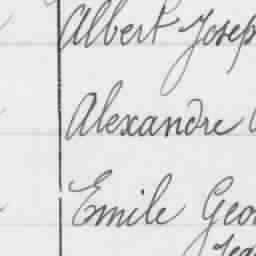 Albert Josep
Alexandre
Emile Geor
Jea